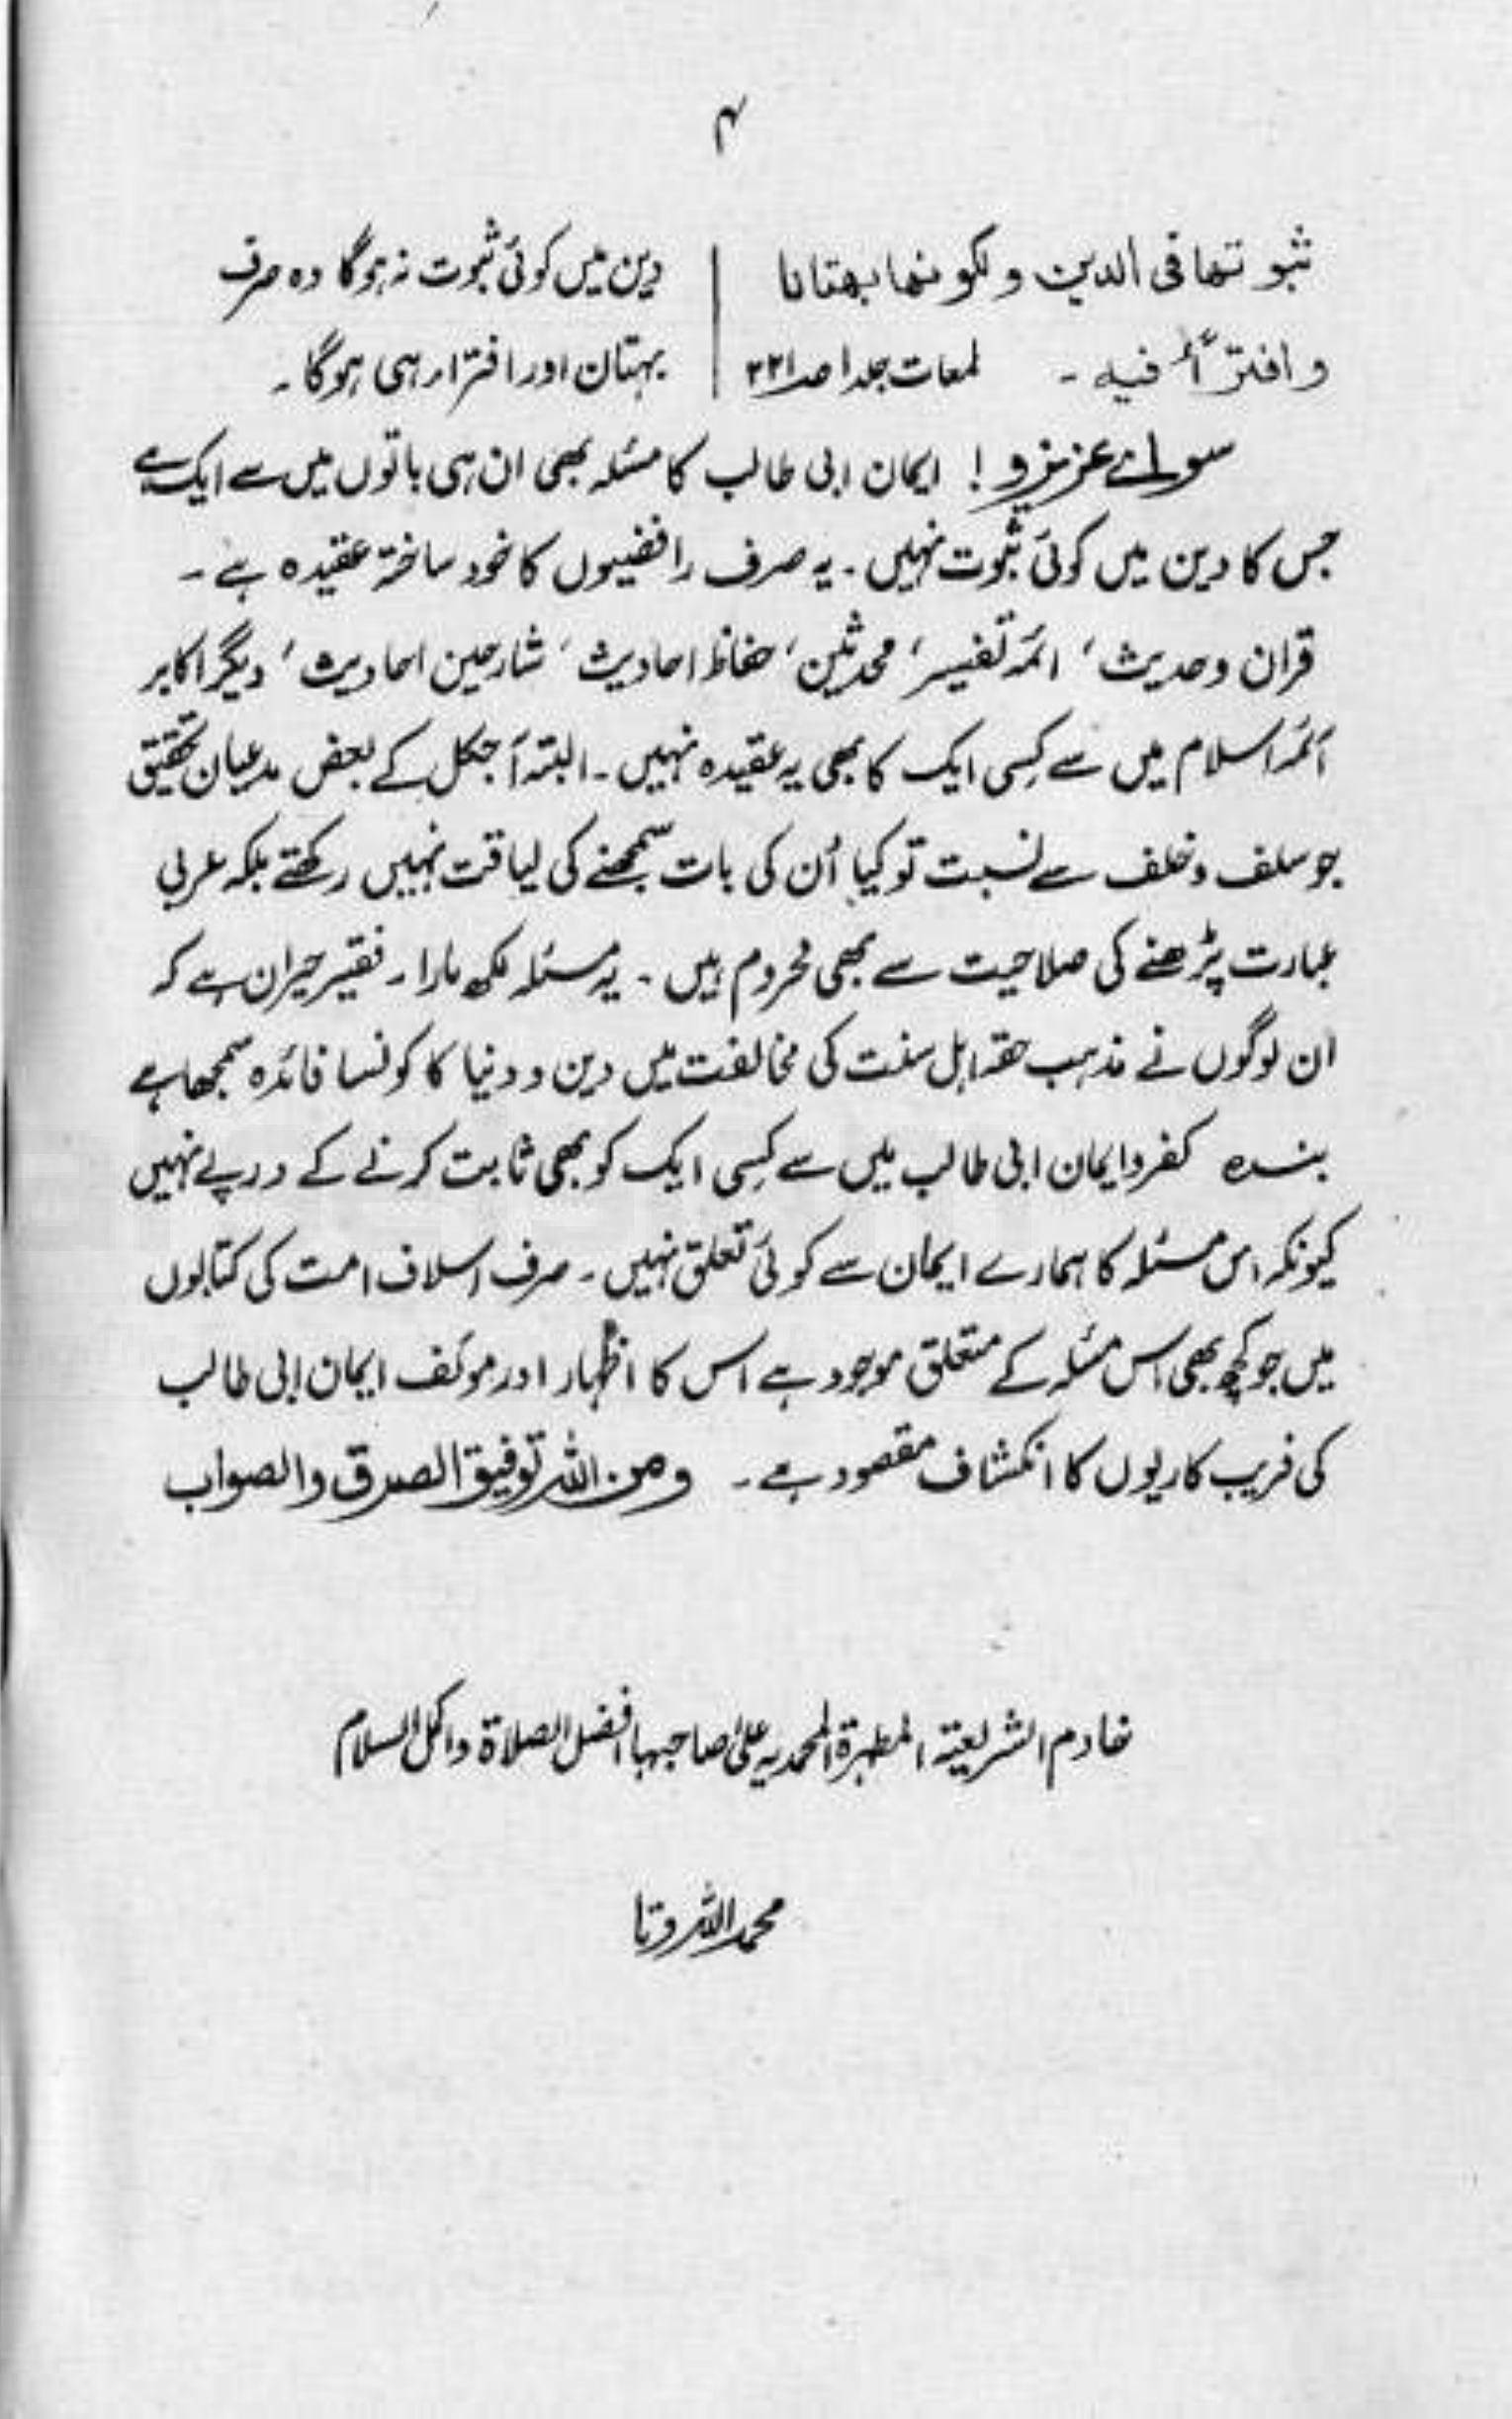 ۴
ثبوتها فی الدین و لکونها بهتانا
وافترأً فیه - لمعات جلد ا صد ۲۲۱
دین میں کوئی ثبوت نہ ہوگا وہ صرف
بہتان اور افترار ہی ہوگا۔
سو اے عزیزو! ایمان ابی طالب کا مسئلہ بھی ان ہی باتوں میں سے ایک ہے
جس کا دین میں کوئی ثبوت نہیں۔ یہ صرف رافضیوں کا خود ساختہ عقیدہ ہے۔
قران و حدیث ' ائمہ تفسیر ' محدثین ' حفاظ احادیث ' شارحین احادیث ' دیگر اکابر
آئمہ اسلام میں سے کسی ایک کا بھی یہ عقیدہ نہیں۔ البتہ آجکل کے بعض مدعیان تحقیق
جو سلف و خلف سے نسبت تو کیا اُن کی بات سمجھنے کی لیاقت نہیں رکھتے بلکہ عربی
عبارت پڑھنے کی صلاحیت سے بھی محروم ہیں۔ یہ مسئلہ لکھ مارا۔ فقیر حیران ہے کہ
ان لوگوں نے مذہب حقہ اہل سنت کی مخالفت میں دین و دنیا کا کونسا فائدہ سمجھا ہے
بندہ کفر و ایمان ابی طالب میں سے کسی ایک کو بھی ثابت کرنے کے درپے نہیں
کیونکہ اس مسئلہ کا ہمارے ایمان سے کوئی تعلق نہیں۔ صرف اسلاف امت کی کتابوں
میں جو کچھ بھی اس مسئلہ کے متعلق موجود ہے اس کا اظہار اور مولف ایمان ابی طالب
کی فریب کاریوں کا انکشاف مقصود ہے۔ ومن اللہ توفیق الصدق والصواب
خادم الشریعۃ المطہرۃ المحمدیہ علیٰ صاحبہا افضل الصلاۃ واکمل السلام
محمد اللہ دتا